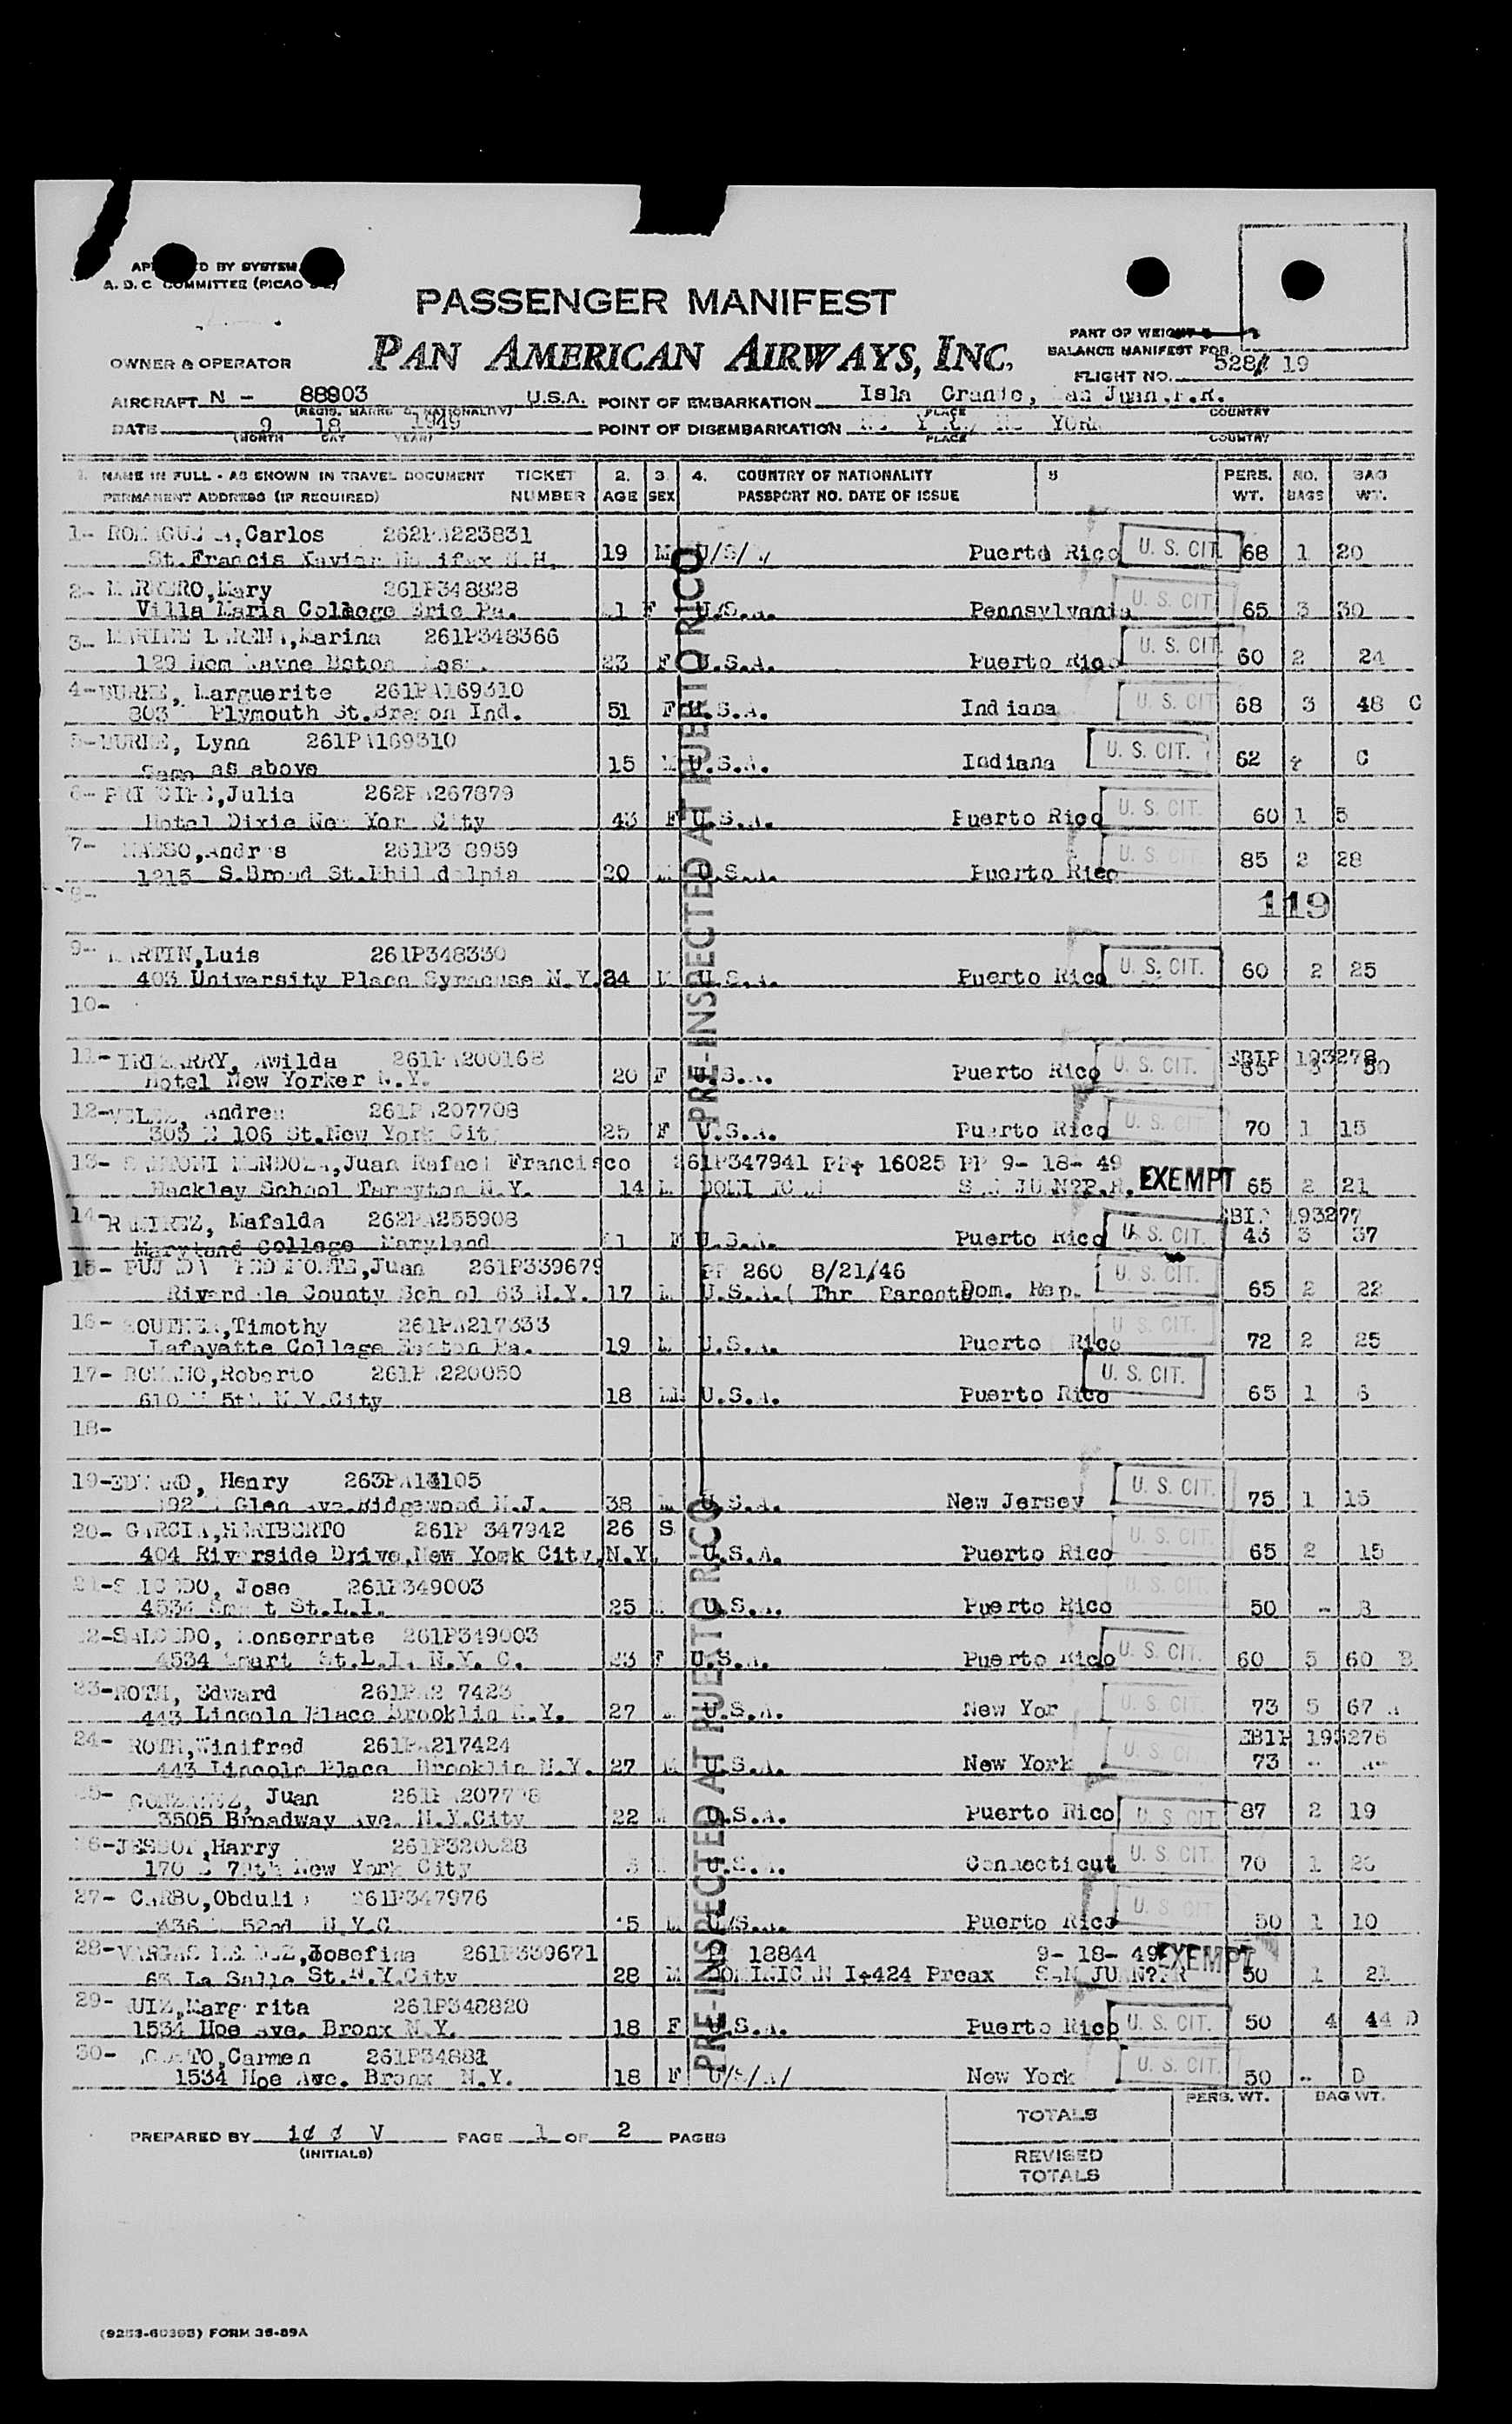 D BY SYSTEM
A. D. C. COMMITTEE (PICAO
PASSENGER MANIFEST
PAN AMERICAN AIRWAYS, INC.
PART OF WEIGHT &
BALANCE MANIFEST FOR
OWNER & OPERATOR
FLIGHT NO. 528/ 19
AIRCRAFT N - 88903 U.S.A. POINT OF EMBARKATION Isla Grande, San Juan,P.R.
(REGIS. MARKS & NATIONALITY) PLACE COUNTRY
DATE 9 18 1949 POINT OF DISEMBARKATION YORK
(MONTH DAY YEAR) PLACE COUNTRY
1. NAME IN FULL - AS SHOWN IN TRAVEL DOCUMENT TICKET 2. 3. 4. COUNTRY OF NATIONALITY 5 PERS. NO. BAG
PERMANENT ADDRESS (IF REQUIRED) NUMBER AGE SEX PASSPORT NO. DATE OF ISSUE WT. BAGS WT.
PRE-INSPECTED AT PUERTO RICO
1- Carlos 262PA223831
St.Francis Xavier N.H. 19 M U/S/ Puerto Rico U. S. CIT. 68 1 20
2- MARRERO,Mary 261P348828
Villa Maria College Erie Pa. F U/S.A. Pennsylvania U. S. CIT. 65 3 30
3- Marina 261P348366
129 23 F U.S.A. Puerto Rico U. S. CIT. 60 2 24
4-BURKE, Marguerite 261PA169310
803 Plymouth St. Ind. 51 F U.S.A. Indiana U. S. CIT 68 3 48 C
5-BURKE, Lynn 261PA169310
Same as above 15 M U.S.A. Indiana U. S. CIT. 62 C
6- PRINCIPE,Julia 262PA267879
Hotel Dixie New York City 43 F U.S.A. Puerto Rico U. S. CIT. 60 1 5
7- Andres 261P3 8959
1215 S.Broad St.Philadelpia 20 M U.S.A. Puerto Rico U. S. CIT. 85 2 28
8- 119
9- MARTIN,Luis 261P348330
403 University Place Syracuse N.Y. 24 M U.S.A. Puerto Rico U. S. CIT. 60 2 25
10-
11- IRIZARRY, Awilda 261PA200168 EBIP 193278
Hotel New Yorker N.Y. 20 F U.S.A. Puerto Rico U. S. CIT. 50
12-VELEZ, Andrea 261PA207708
305 E 106 St.New York City 25 F U.S.A. Puerto Rico U. S. CIT. 70 1 15
13- MENDOZA,Juan Rafael Francisco 261P347941 PP+ 16025 PP 9- 18- 49
Hackley School Tarryton N.Y. 14 M DOMINICAN SAN JUAN?P.R. EXEMPT 65 2 21
14-RAMIREZ, Mafalda 262PA255908 EBIP 193277
Maryland College Maryland F U.S.A. Puerto Rico U. S. CIT. 43 3 37
15- Juan 261P339679 PP 260 8/21/46
Riverdale County School 63 N.Y. 17 M U.S.A.( Thr Parents Dom. Rep. U. S. CIT. 65 2 22
16- Timothy 261PA217333
Lafayette College Easton Pa. 19 M U.S.A. Puerto Rico U. S. CIT. 72 2 25
17- ROMANO,Roberto 261PA220050
610 W 5th N.Y.City 18 M U.S.A. Puerto Rico U. S. CIT. 65 1 6
18-
19-EDWARD, Henry 263PA14105
Glen Ave.Ridgewood N.J. 38 M U.S.A. New Jersey U. S. CIT. 75 1 15
20- GARCIA,HERIBERTO 261P 347942 26 S
404 Riverside Drive,New York City,N.Y. U.S.A. Puerto Rico U. S. CIT. 65 2 15
21-SALCEDO, Jose 261P349003
4534 St.L.I. 25 U.S.A. Puerto Rico U. S. CIT. 50 - B
22-SALCEDO, Monserrate 261P349003
4534 St.L.I. N.Y. C. 23 F U.S.A. Puerto Rico U. S. CIT. 60 5 60 B
23-ROTH, Edward 261PA2 7423
443 Lincoln Place Brooklin N.Y. 27 M U.S.A. New Yor U. S. CIT. 73 5 67 A
24- ROTH,Winifred 261PA217424 EBIP 193276
443 Lincoln Place Brooklin N.Y. 27 M U.S.A. New York U. S. CIT. 73 -
25- GONZALEZ, Juan
3505 Broadway Ave. N.Y.City 22 M U.S.A. Puerto Rico U. S. CIT 87 2 19
26-JESSOP,Harry
170 E New York City U.S.A. Connecticut U. S. CIT. 70 1
27- CARBO,Obdulio 261P347976
52nd N.Y.C. M U/S.A. Puerto Rico U. S. CIT. 50 1 10
28-VARGAS Josefina 261P339671 18844 9- 18- 49
La Salle St.N.Y.City 28 M DOMINICAN I+424 Preax SAN JUAN?PR EXEMPT 50 1 21
29- RUIZ,Margarita 261P348820
1534 Hoe Ave. Bronx N.Y. 18 F U.S.A. Puerto Rico U. S. CIT. 50 4 44 D
30- Carmen
1534 Hoe Ave. Bronx N.Y. 18 F U/S/A/ New York U. S. CIT. 50 -- D
PERS. WT. BAG WT.
TOTALS
PREPARED BY V PAGE 1 OF 2 PAGES
(INITIALS)
REVISED
TOTALS
FORM 36-89A